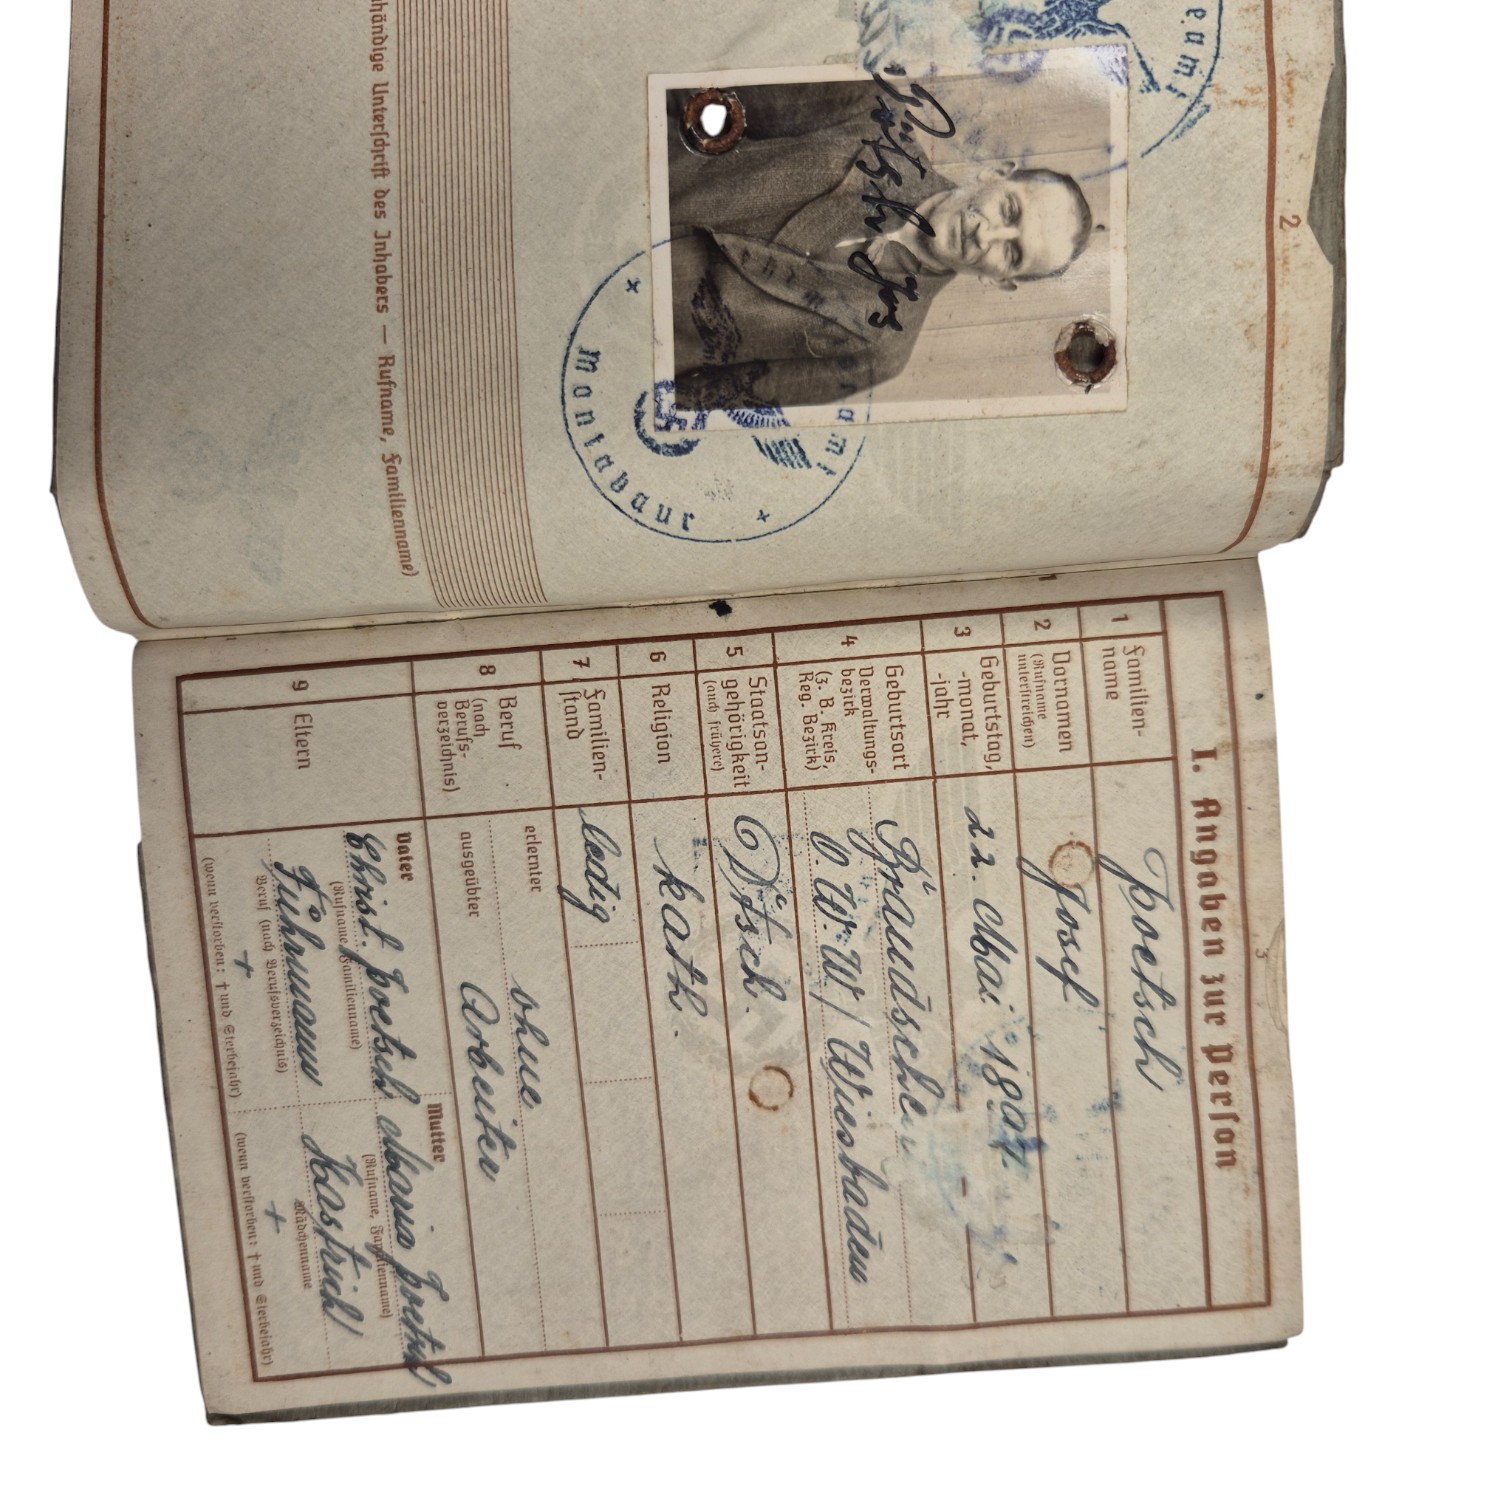 2
händige Unterschrift des Inhabers — Rufname, Familienname)
Montabaur
3
I. Angaben zur Person
1 Familien-
name
Poetsch
2 Vornamen
(Rufname
unterstreichen)
Josef
3 Geburtstag,
-monat,
-jahr
22. Mai 1894.
4 Geburtsort
Verwaltungs-
bezirk
(z. B. Kreis,
Reg. Bezirk)
Braundscheu
O. W. W / Wiesbaden
5 Staatsan-
gehörigkeit
(auch frühere)
Dtsch.
6 Religion
kath.
7 Familien-
stand
ledig
8 Beruf
(nach
Berufs-
verzeichnis)
erlernter
ohne
ausgeübter
Arbeiter
9 Eltern
Vater
Mutter
Christ. Poetsch
Maria Poetsch
(Rufname, Familienname)
(Rufname, Familienname)
Führmann
Kastrich
Beruf (nach Berufsverzeichnis)
Mädchenname
+
+
(wenn verstorben: † und Sterbejahr)
(wenn verstorben: † und Sterbejahr)